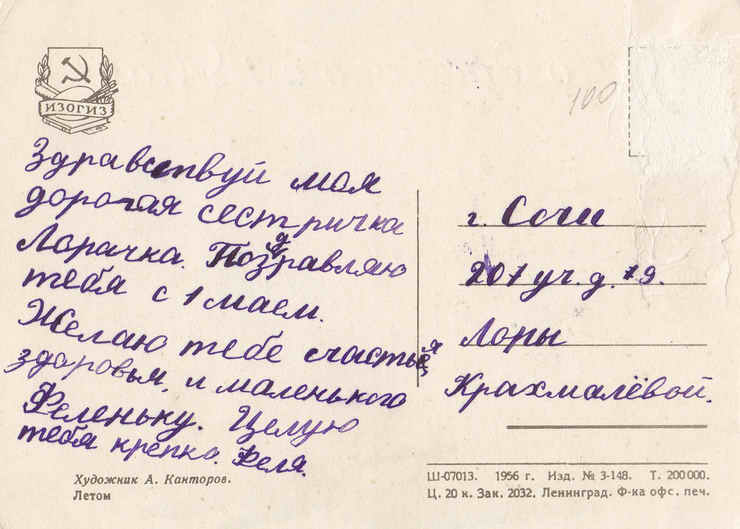 ИЗОГИЗ
100
Здравствуй моя
дорогая сестричка
Лорачка. Поздравляю
тебя с 1 маем.
Желаю тебе счастья
здоровья, и маленького
Феленьку. Целую
тебя крепко. Феля.
Художник А. Канторов.
Летом
г. Сочи
201 уч. д. 19.
Лоры
Крахмалёвой.
Ш-07013. 1956 г. Изд. № 3-148. Т. 200 000.
Ц. 20 к. Зак. 2032. Ленинград. Ф-ка офс. печ.